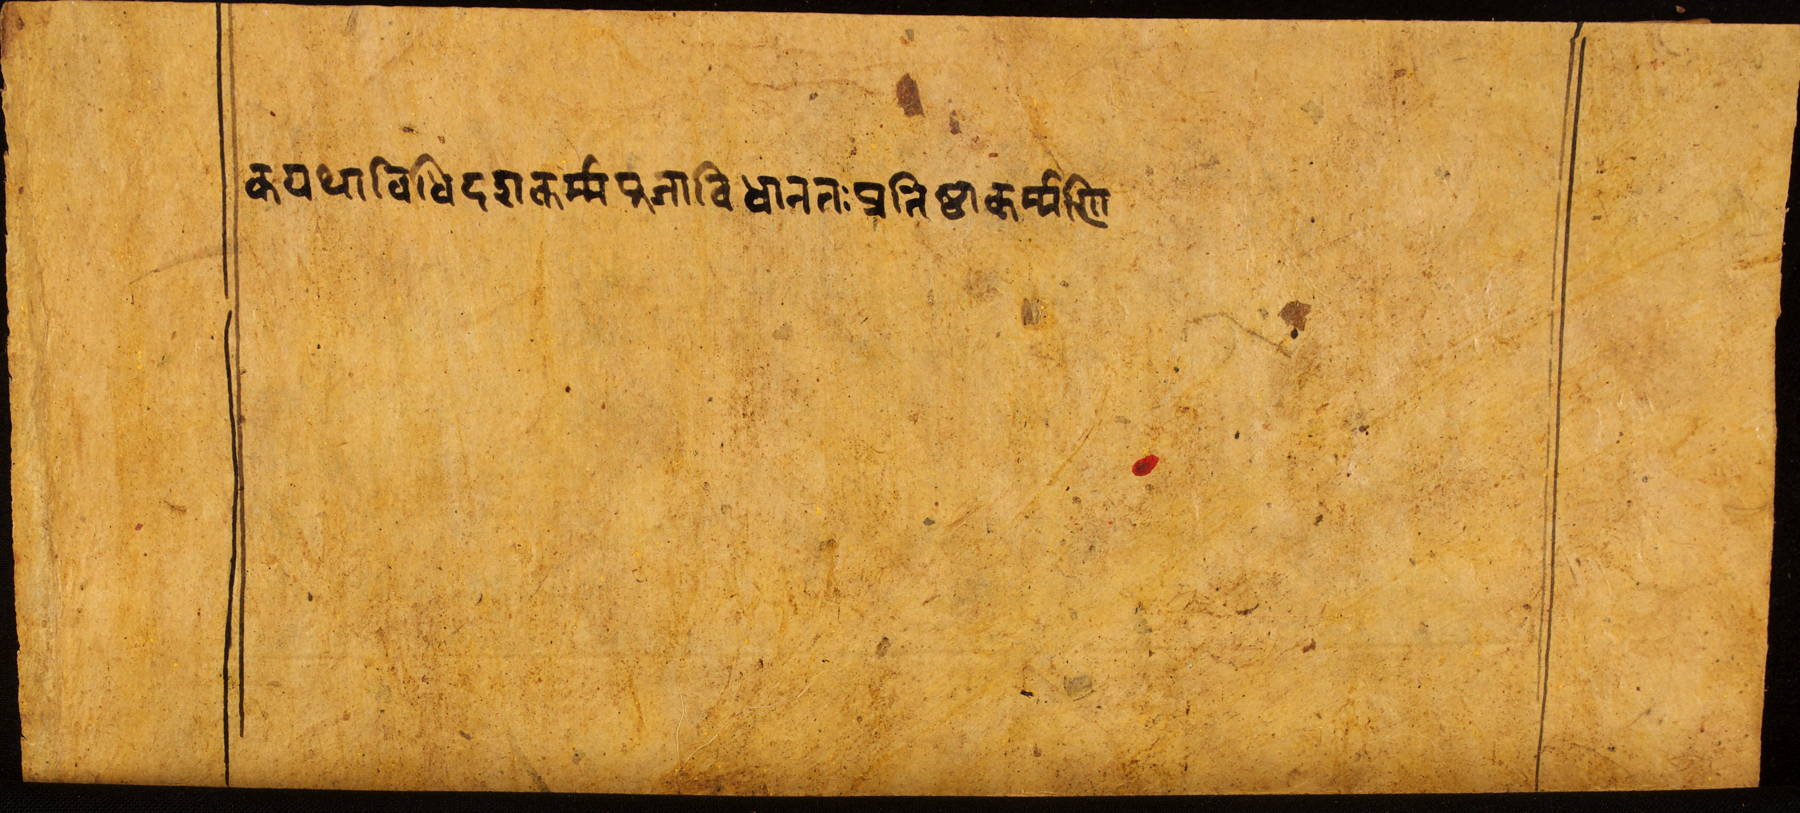 कयथाविधिदशकर्म्मपूजाविधानतःप्रतिष्ठाकर्म्मणि